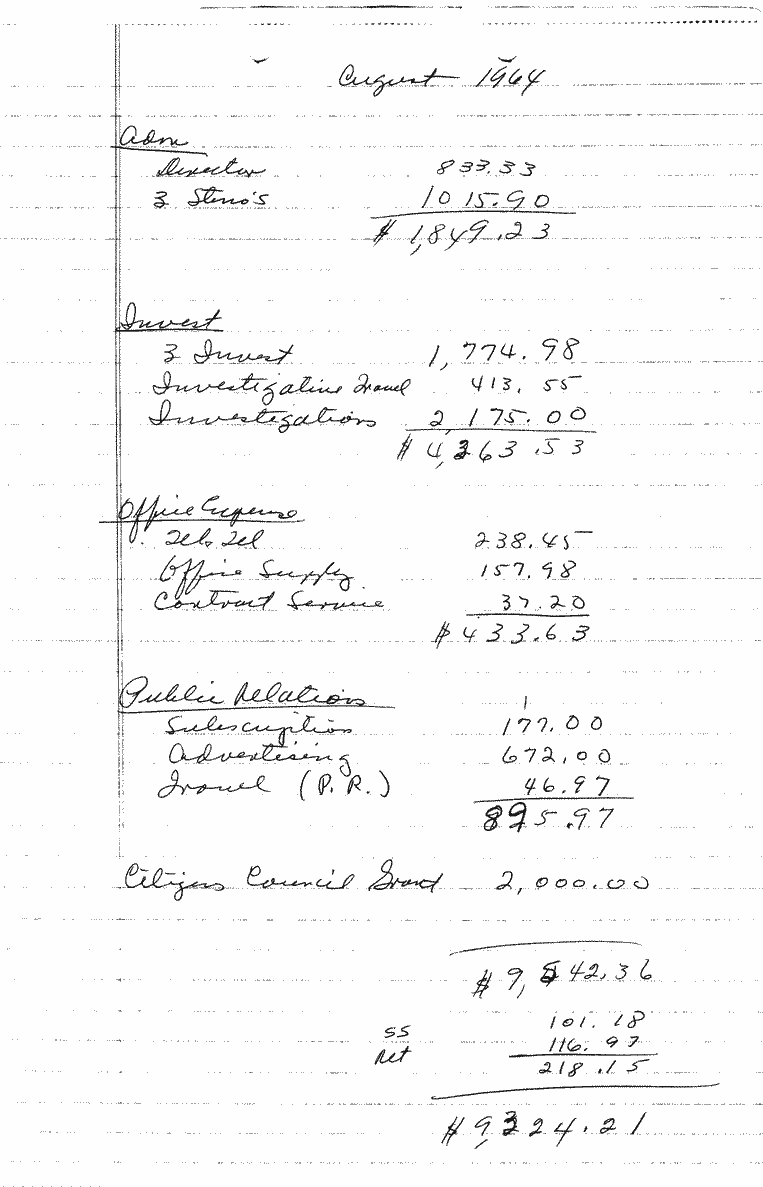 August 1964
Adm
Director 833.33
3 Steno's 1015.90
$ 1,849.23
Invest
3 Invest 1,774.98
Investigative Travel 413.55
Investigations 2,175.00
$ 4,363.53
Office Expense
Tel & Tel 238.45
Office Supply 157.98
Contract Service 37.20
$ 433.63
Public Relations
1
Subscription 177.00
Advertising 672.00
Travel (P.R.) 46.97
895.97
Citizens Council Grant 2,000.00
$ 9,542.36
SS 101.18
Ret 116.97
218.15
$ 9,324.21